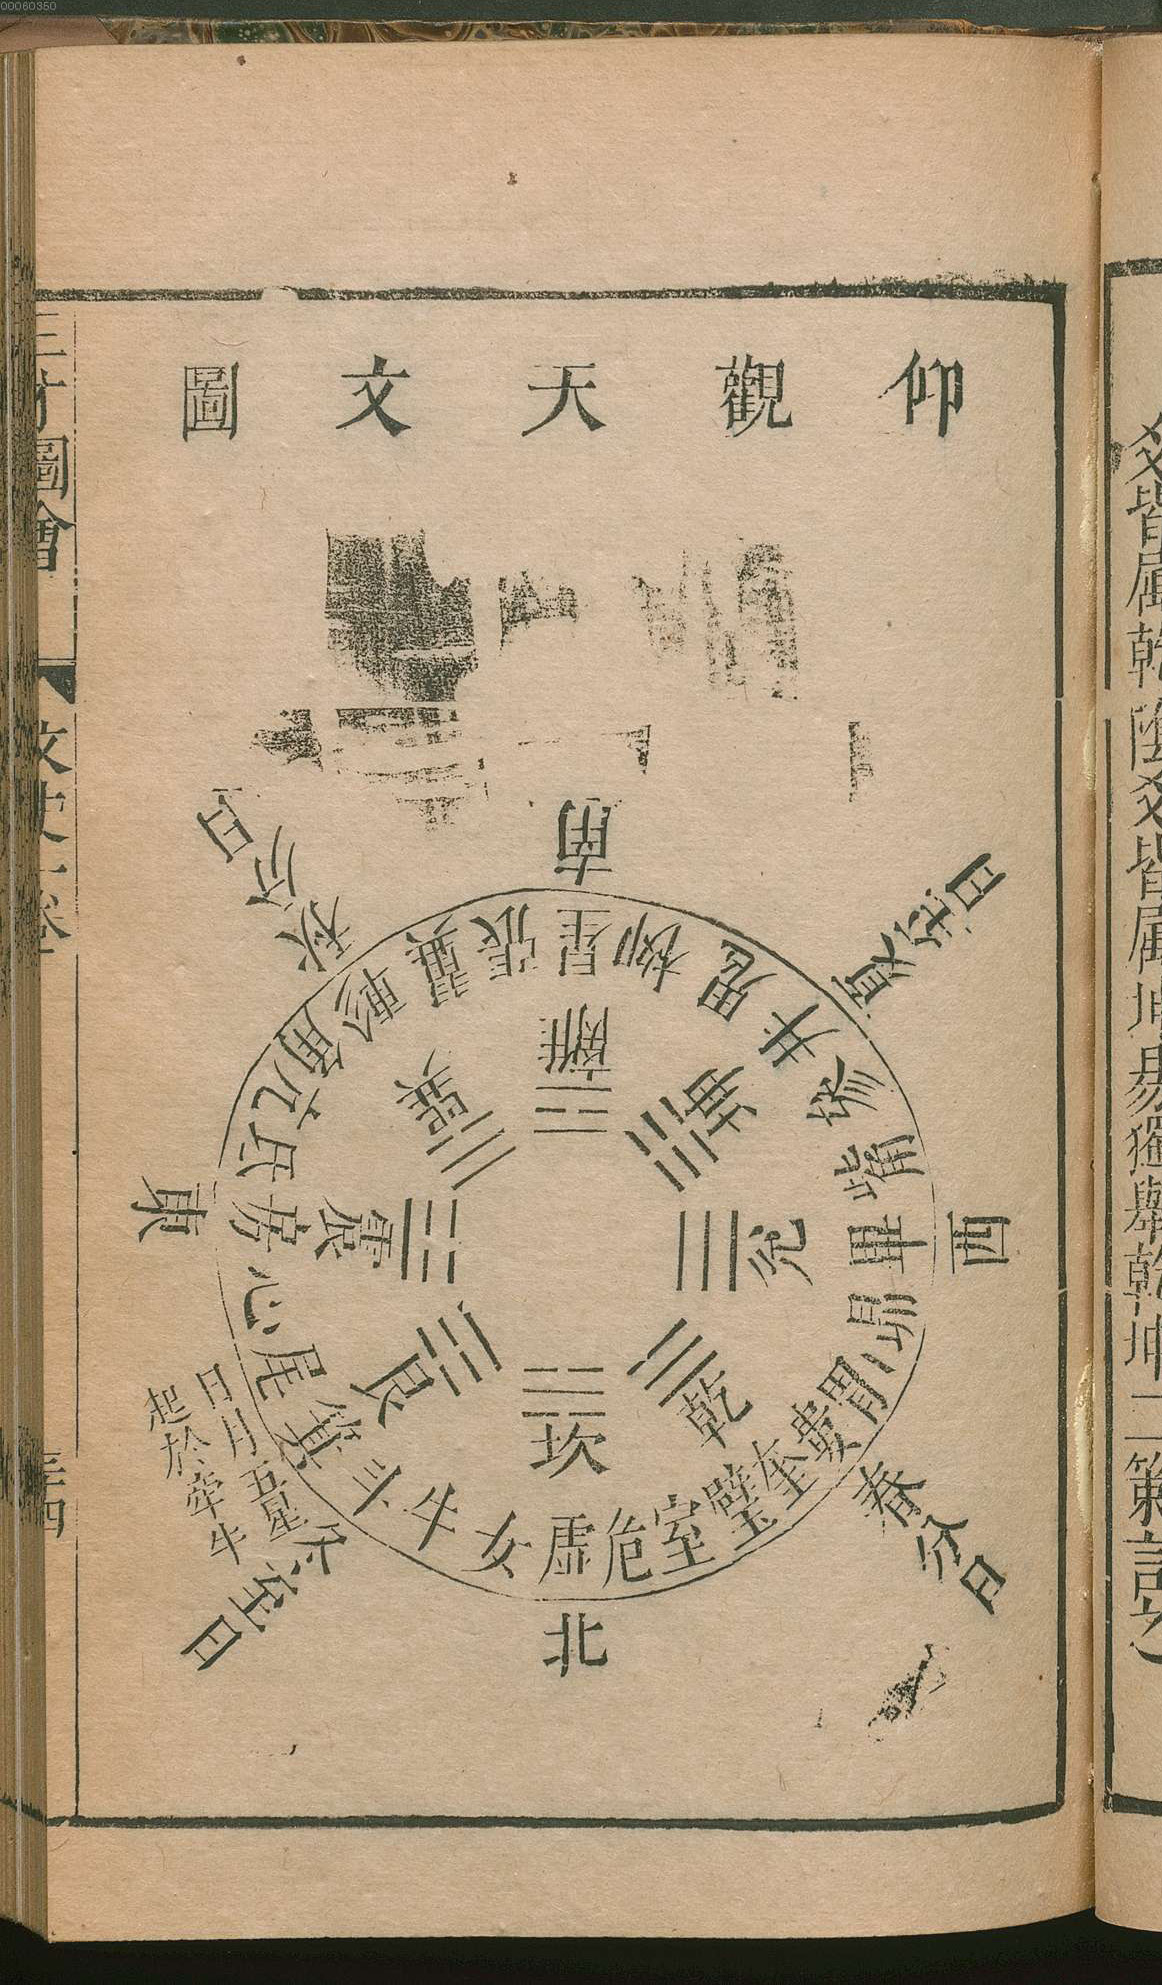 00060350
仰觀天文圖
南
西
北
東
秋分日
夏至日
春分日
冬至日
日月五星
起於牽牛
角亢氐房心尾箕
斗牛女虛危室壁
奎婁胃昴畢觜參
井鬼柳星張翼軫
離
坤
兌
乾
坎
艮
震
巽
三才圖會
文史一卷
三四
爻皆屬乾陰爻皆屬坤易獨舉乾坤二策計之